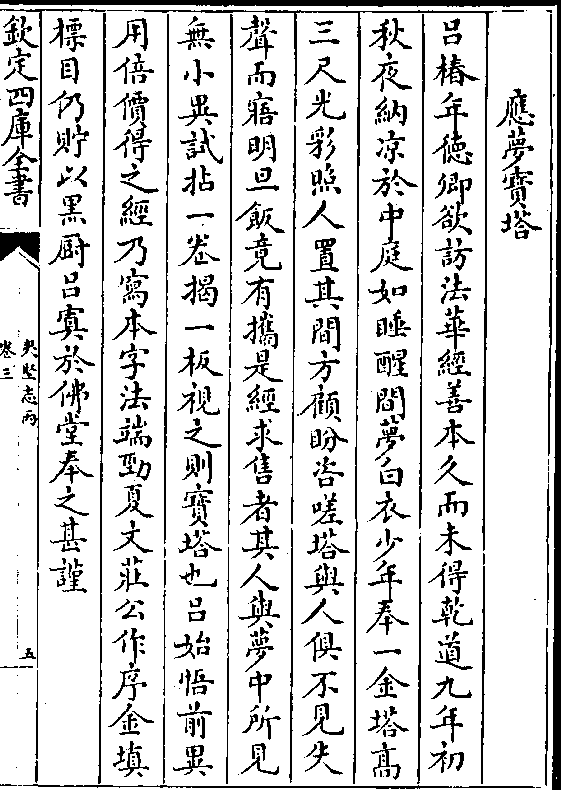 應夢寶塔
呂椿年德卿欲訪法華經善本久而未得乾道九年初
秋夜納凉於中庭如睡醒間夢白衣少年奉一金塔髙
三尺光彩照人置其間方顧盼咨嗟塔與人俱不見失
聲而寤明旦飯竟有攜是經求售者其人與夢中所見
無小異試拈一卷揭一板視之則寶塔也呂始悟前異
用倍價得之經乃寫本字法端勁夏文莊公作序金填
標目仍貯以黒厨呂寘於佛堂奉之甚謹
欽定四庫全書
夷堅志丙
卷三
五